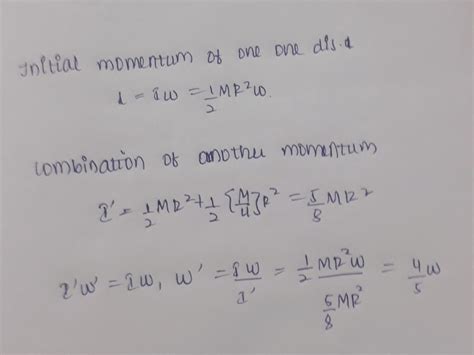 Initial momentum of one one dis.d
L = Iω = 1/2 MR²ω.
combination of another momentum
I' = 1/2 MR² + 1/2 [M/4] R² = 5/8 MR²
I'ω' = Iω, ω' = Iω/I' = (1/2 MR²ω)/(5/8 MR²) = 4/5 ω